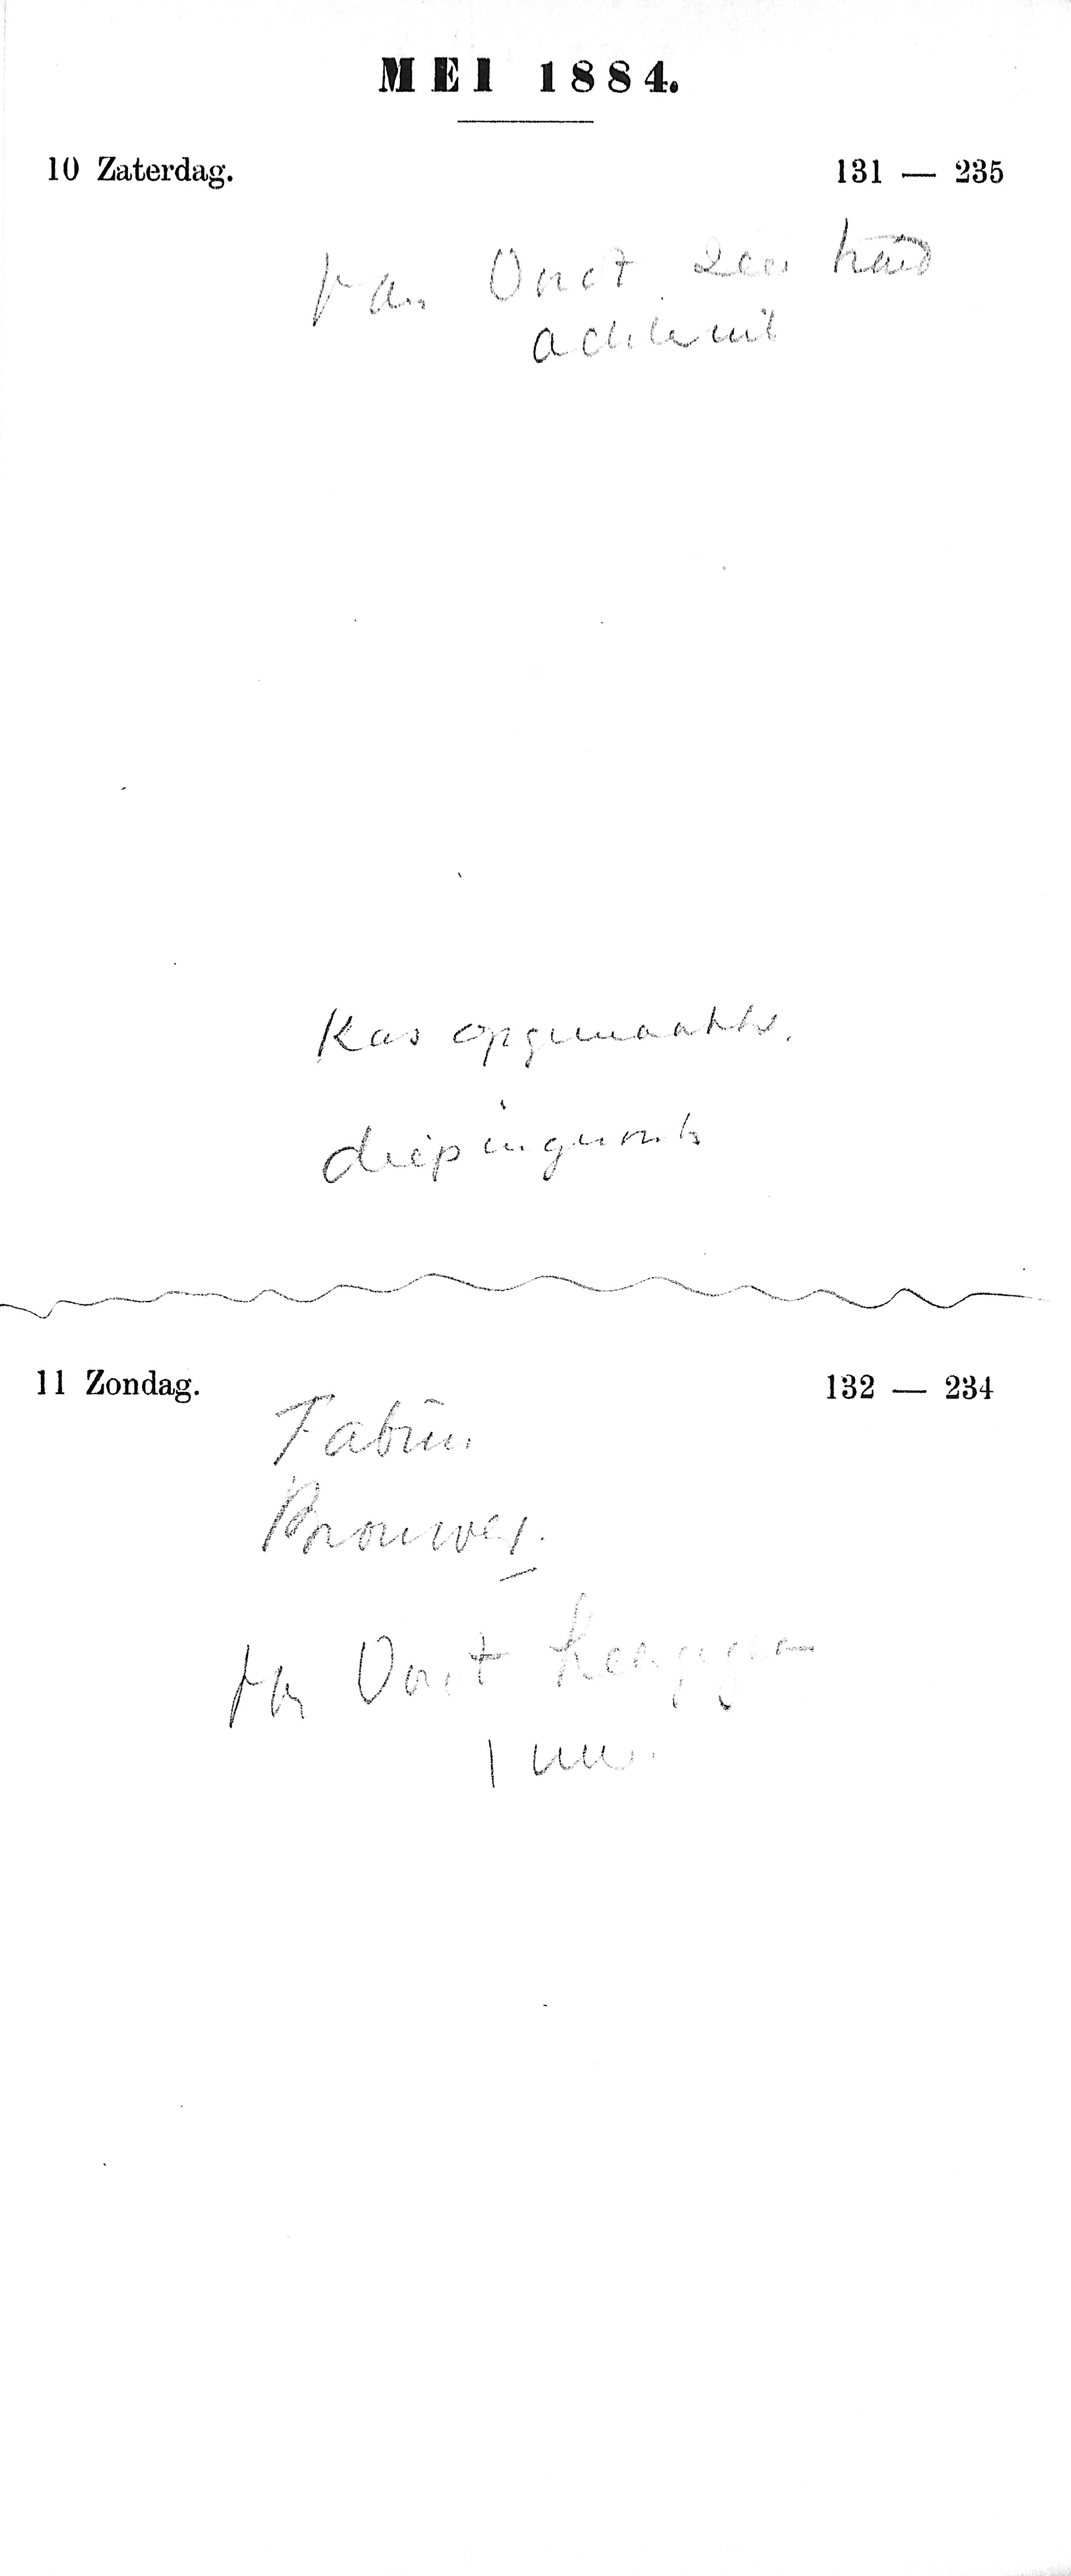 MEI 1884.
10 Zaterdag. 131 — 235
van Oort zeer hard
achteruit
Kas opgemaakt
diep
11 Zondag. 132 — 234
Brouwer.
van Oort
1 uur.